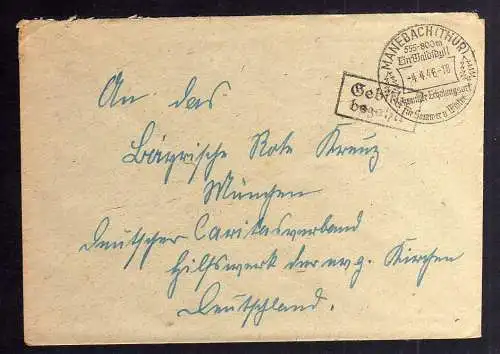 MANEBACH (THÜR)
555-800m
Ein Waldidyll
-4.4.46-18
Erholungsort
für Sommer u. Winter
Geb
bezahlt
An das
Bayrische Rote Kreuz
München
Deutscher Caritasverband
Hilfswerk der evg. Kirchen
Deutschland.